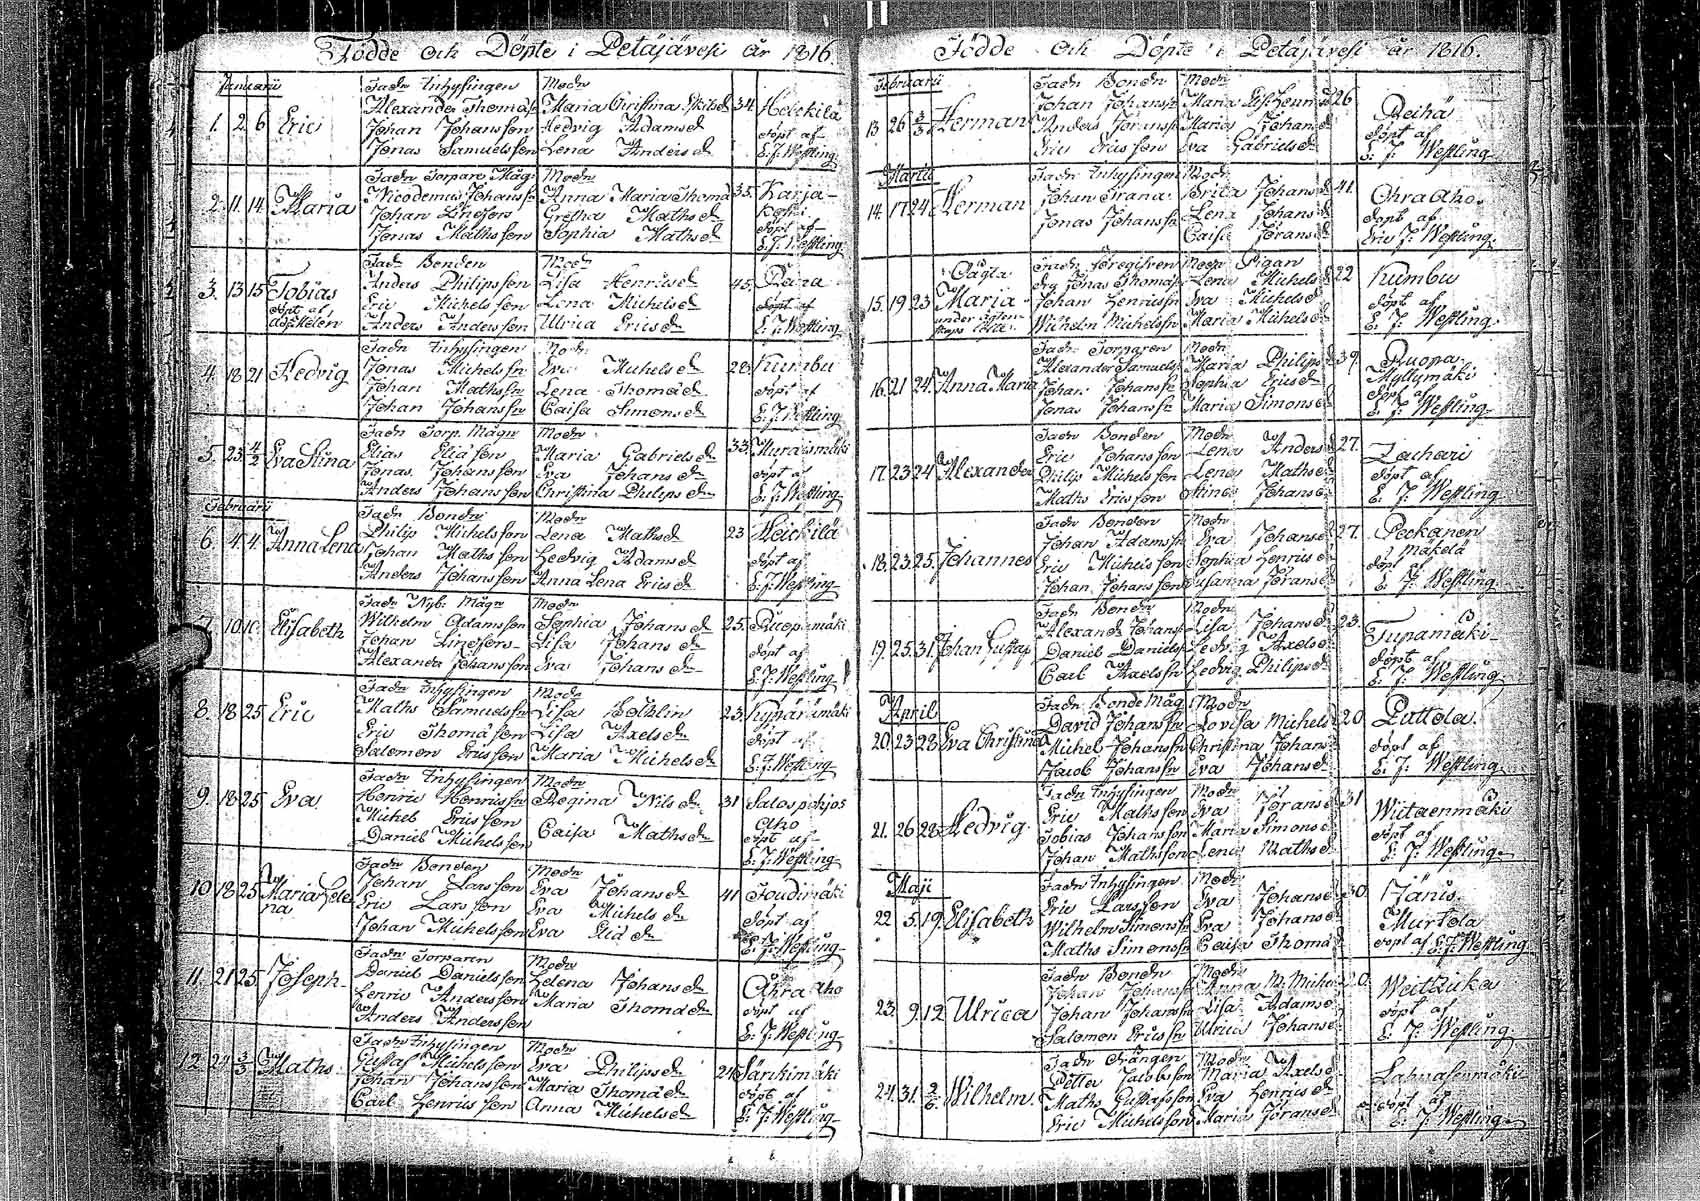 Födde och Döpte i Petäjävesi år 1816.
Januarii
Fadr Inhysingen Modr
1. 2 6 Eric Alexander Thomas Maria Christina Skitsd 34 Heickilä
Johan Johansson Hedvig Adamsd döpt af
Jonas Samuelsson Lena Andersd E. J. Westling
Fadr Torpare Måg Modr
2. 11. 14. Maria Nicodemus Johanss Anna Maria Thomad 35. Karja-
Johan Linefors Gretha Mathsd
Jonas Mathsson Sophia Mathsd döpt af
E. J. Westling
Fadr Bonden Modr
3. 13 15 Tobias Anders Philipsson Lisa Henricsd 45.
döpt af Eric Michelsson Lena Michelsd döpt af
Anders Andersson Ulrica Ericsd E. J. Westling
Fadr Inhysingen Modr
4. 18 21 Hedvig Jonas Michelssn Eva Michelsd 22 Kumbu
Johan Mathssn Lena Thomad döpt af
Johan Johanssn Caisa Simonsd E. J. Westling
Fadr Torp. Mågn Modr
5. 23 4/2 Eva Stina Elias Eliasson Maria Gabrielsd 33. Muraismäki
Jonas Johansson Eva Johansd döpt af
Anders Johansson Christina Philipsd E. J. Westling
Februarii
Fadr Bonden Modr
6. 4. 4. Anna Lena Philip Michelsson Lena Mathsd 23 Heickilä
Johan Mathsson Hedvig Adamsd döpt af
Anders Johansson Anna Lena Ericsd E. J. Westling
Fadr Nyb. Mågn Modr
7. 10 10 Elisabeth Wilhelm Adamsson Sophia Johansd 25. Ruopamäki
Johan Linefors Lisa Johansd döpt af
Alexander Johansson Eva Johansd E. J. Westling
Fadr Inhysingen Modr
8. 18 25 Eric Maths Samuelssn Lisa Bölklin 23. Kypärämäki
Eric Thomasson Lisa Axelsd döpt af
Salomon Ericsson Maria Michelsd E. J. Westling
Fadr Inhysingen Modr
9. 18 25 Eva Henric Henricssn Regina Nilsd 31 Salospohjos
Michel Ericsson Aho
Daniel Michelsson Caisa Mathsd döpt af
E. J. Westling
Fadr Bonden Modr
10 18 25 Maria Hele Johan Larsson Eva Johansd 41 Joudimäki
na Eric Larsson Eva Michelsd döpt af
Johan Michelsson Eva Eliad E. J. Westling
Fadr Torparen Modr
11. 21 25 Joseph Daniel Danielsson Helena Johansd Ahra Aho
Henric Andersson Maria Thomad döpt af
Anders Andersson E. J. Westling
Fadr Inhysingen Modr
12 24 3/3 Maths Gustaf Michelsson Eva Philipsd 24 Särkimäki
Johan Johansson Maria Thomad döpt af
Carl Henricsson Anna Michelsd E. J. Westling
Födde och Döpte i Petäjävesi år 1816.
Februarii
Fadr Bondn Modr
13 26 3/3 Herman Johan Johanss Maria 26 Reihä
Anders Joranss Maria Johansd döpt af
Eric Ericsson Eva Gabrielsd E. J. Westling
Martii
Fadr Inhysingen Modr
14. 17 24 Herman Johan Grana Brita Johansd 41. Ohra aho.
Jonas Johanssn Lena Johansd döpt af
Caisa Joransd Eric J. Westling
Oägta Modr Pigan
15. 19 23 Maria Jonas Thomass Lena Michelsd 22 Kumbu
Johan Henricssn Eva Michelsd döpt af
Wilhelm Michelssn Maria Michelsd E. J. Westling
Fadr Torparen Modr
16. 21 24. Anna Maria Alexander Samuelss Maria Philipsd 39. Ruopa-
Johan Johanssn Sophia Ericsd Myllymäki
Jonas Johanssn Maria Simonsd döpt af
E. J. Westling
Fadr Bonden Modr
17. 23 24 Alexander Eric Johansson Lena Andersd 27. Zachari
Philip Michelsson Lena Mathsd döpt af
Maths Ericsson Stina Johansd E. J. Westling
Fadr Bonden Modr
18. 23. 25. Johannes Johan Adamssn Eva Johansd 27. Peckanen
Eric Michelsson Sophia Henricsd Mäkelä
Johan Johansson Susanna Joransd döpt af
E. J. Westling
Fadr Bonden Modr
19. 25. 31. Johan Gustaf Alexand Johanss Lisa Johansd 23. Tupamäki
Daniel Danielss Hedvig Axelsd döpt af
Carl Axelsson Hedvig Philipsd E. J. Westling
April
Fadr Bonde Måg Modr
20 23 28 Eva Christina David Johanssn Lovisa Michelsd 20. Puttola.
Michel Johanssn Christina Johansd döpt af
Jacob Johanssn Eva Johansd E. J. Westling
Fadr Inhysingen Modr
21. 26 28 Hedvig Eric Mathsson Eva Joransd 31 Wiitaenmäki
Tobias Johansson Maria Simonsd döpt af
Johan Mathsson Lena Mathsd E. J. Westling
Maji
Fadr Inhysingen Modr
22 5. 19. Elisabeth Eric Larsson Eva Johansd 30 Jänis.
Wilhelm Simonss Eva Johansd Murtola
Maths Simonssn Caisa Thomad döpt af E. J. Westling
Fadr Bonden Modr
23. 9. 12 Ulrica Johan Johanss Anna M. Michels 20. Weitzika
Johan Johansson Lisa Adamsd döpt af
Salomon Ericssn Ulrica Johansd E. J. Westling
Fadr Drängen Modr
24. 31. 2/6 Wilhelm Petter Jacobsson Maria Axelsd Lahnasenmäki
Maths Gustafsson Eva Henricsd döpt af
Eric Michelsson Maria Joransd E. J. Westling